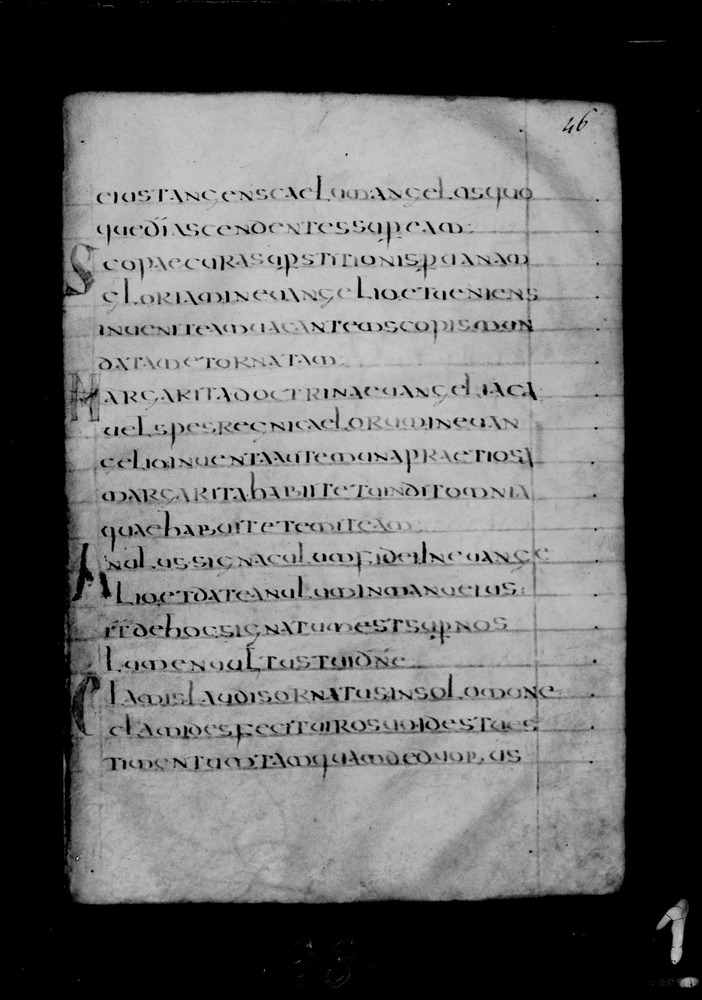 46
eius tangens caelum angelus quo
que di ascendentes sup eam:
Scopae cura supstitionis p uanam
gloriam in euangelio et ueniens
inuenit eam uacantem scopis mun
datam et ornatam:
Margarita doctrina euangeliaca
uel spes regni caelorum in euan
gelio inuenta autem una praetiosa
margarita habiit et uindit omnia
quae habuit et emit eam:
Anulus signaculum fidei in euange
lio et date anulum in manu eius:
et de hoc signatum est sup nos
lumen uultus tui dne
Clamis laudis ornatus in solomone
clamides fecit uiros uo id est ues
timentum tamquam de duobus